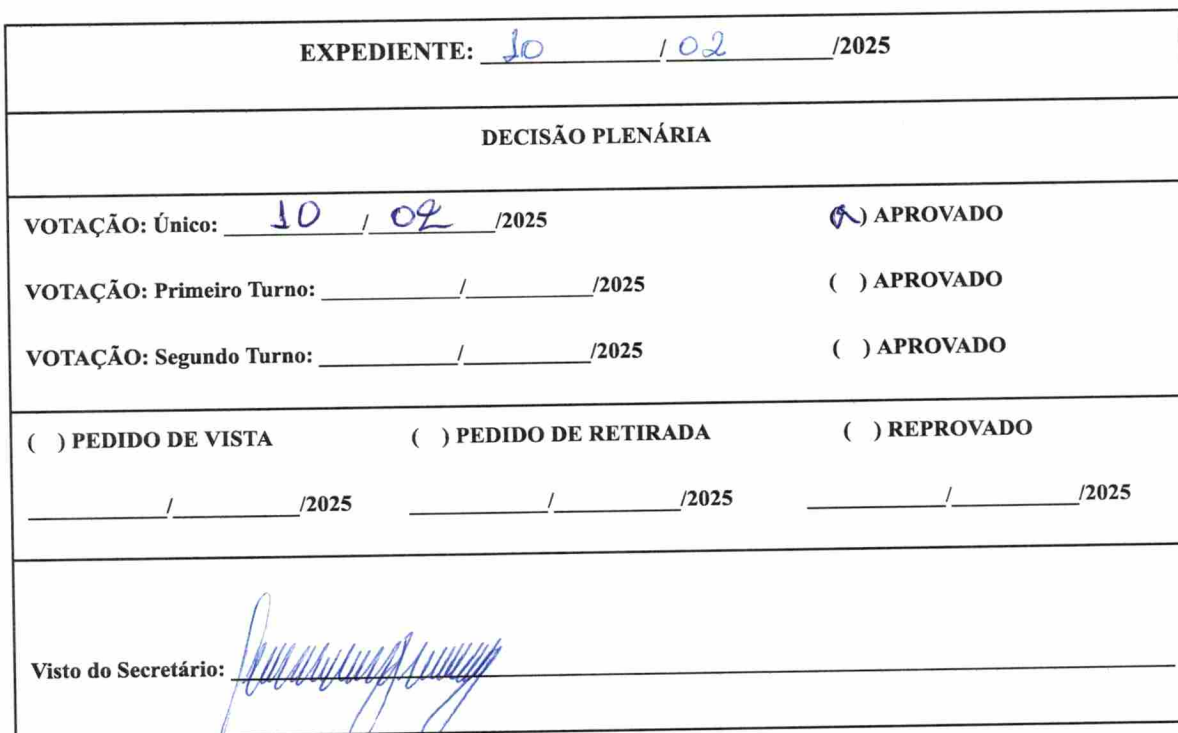 EXPEDIENTE: 10 / 02 /2025
DECISÃO PLENÁRIA
VOTAÇÃO: Único: 10 / 02 /2025 (x) APROVADO
VOTAÇÃO: Primeiro Turno: ___________/__________/2025 ( ) APROVADO
VOTAÇÃO: Segundo Turno: ___________/__________/2025 ( ) APROVADO
( ) PEDIDO DE VISTA ( ) PEDIDO DE RETIRADA ( ) REPROVADO
___________/__________/2025 ___________/__________/2025 ___________/__________/2025
Visto do Secretário: